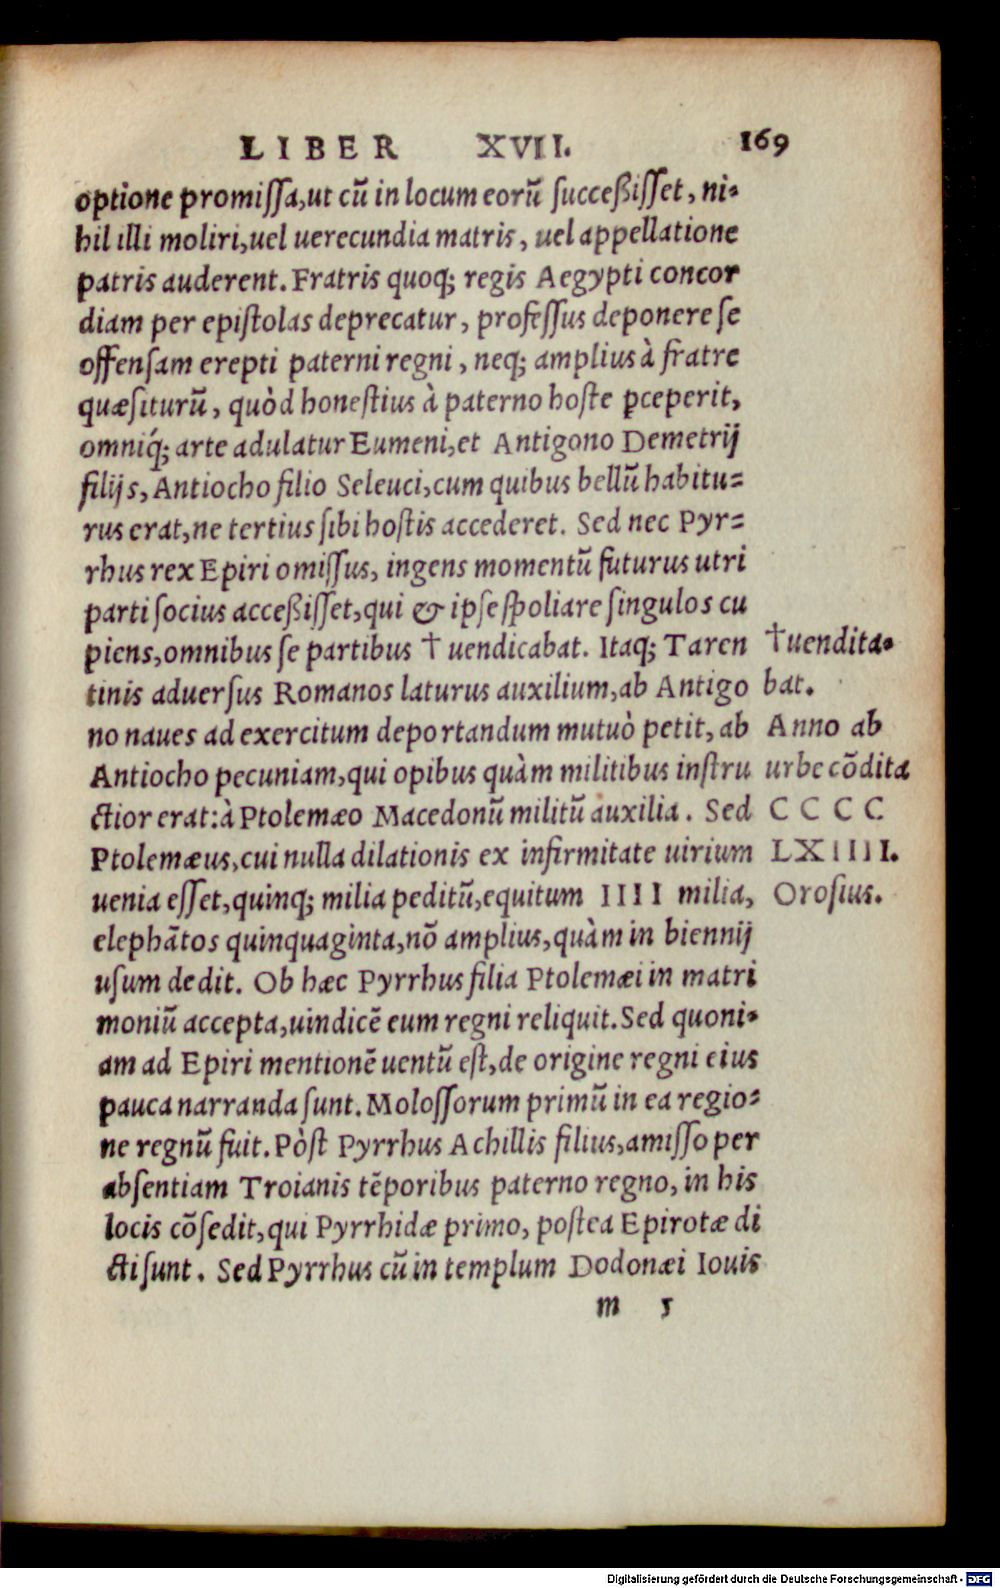 LIBER XVII. 169
optione promissa,ut cū in locum eorū succeßisset, ni-
hil illi moliri,uel uerecundia matris, uel appellatione
patris auderent. Fratris quoq; regis Aegypti concor
diam per epistolas deprecatur, professus deponere se
offensam erepti paterni regni, neq; amplius à fratre
quæsiturū, quòd honestius à paterno hoste ꝑceperit,
omniq́; arte adulatur Eumeni,et Antigono Demetrij
filijs, Antiocho filio Seleuci,cum quibus bellū habitu-
rus erat,ne tertius sibi hostis accederet. Sed nec Pyr-
rhus rex Epiri omissus, ingens momentū futurus utri
parti socius acceßisset,qui & ipse spoliare singulos cu
piens,omnibus se partibus † uendicabat. Itaq; Taren
tinis aduersus Romanos laturus auxilium,ab Antigo
no naues ad exercitum deportandum mutuò petit, ab
Antiocho pecuniam,qui opibus quàm militibus instru
ctior erat:à Ptolemæo Macedonū militū auxilia. Sed
Ptolemæus,cui nulla dilationis ex infirmitate uirium
uenia esset,quinq; milia peditū,equitum IIII milia,
elephātos quinquaginta,nō amplius,quàm in biennij
usum dedit. Ob hæc Pyrrhus filia Ptolemæi in matri
moniū accepta,uindicē eum regni reliquit. Sed quoni-
am ad Epiri mentionē uentū est,de origine regni eius
pauca narranda sunt. Molossorum primū in ea regio-
ne regnū fuit. Pòst Pyrrhus Achillis filius,amisso per
absentiam Troianis tēporibus paterno regno, in his
locis cōsedit,qui Pyrrhidæ primo, postea Epirotæ di
cti sunt. Sed Pyrrhus cū in templum Dodonæi Iouis
m 5
†uendita-
bat.
Anno ab
urbe cōdita
CCCC
LXIIII.
Orosius.
Digitalisierung gefördert durch die Deutsche Forschungsgemeinschaft - DFG